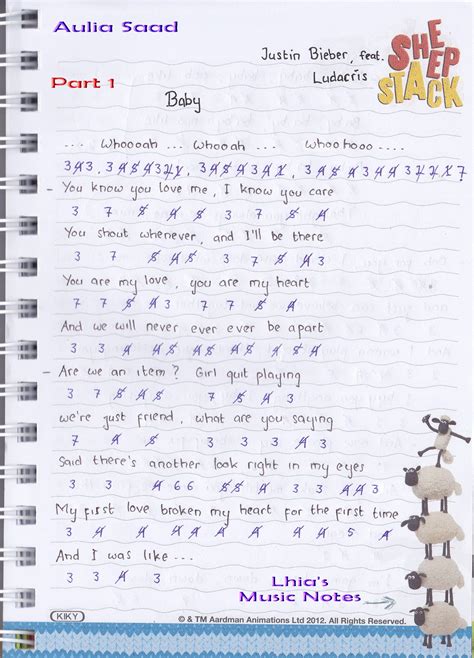 Aulia Saad
Justin Bieber, feat.
Ludacris
SHEEP STACK
Part 1
Baby
... Whoooah ... Whoah ... Whoohooo ...
- You know you love me, I know you care
3 7 5 4 5 3 7 5 4
You shout whenever, and I'll be there
3 7 5 4 5 3 7 5 4
You are my love, you are my heart
3 7 5 43 7 7 5 4
And we will never ever ever be apart
3 3 4 45 45 45 4 5 4
- Are we an item? Girl quit playing
3 7 5 45 4 3 3 4 3
we're just friend, what are you saying
7 4 5 3 3 3 3 4 3
Said there's another look right in my eyes
3 3 4 66 4 3 3 44 3
My first love broken my heart for the first time
And I was like ...
3 3 4 3
Lhia's
Music Notes
KIKY
© & TM Aardman Animations Ltd 2012. All Rights Reserved.